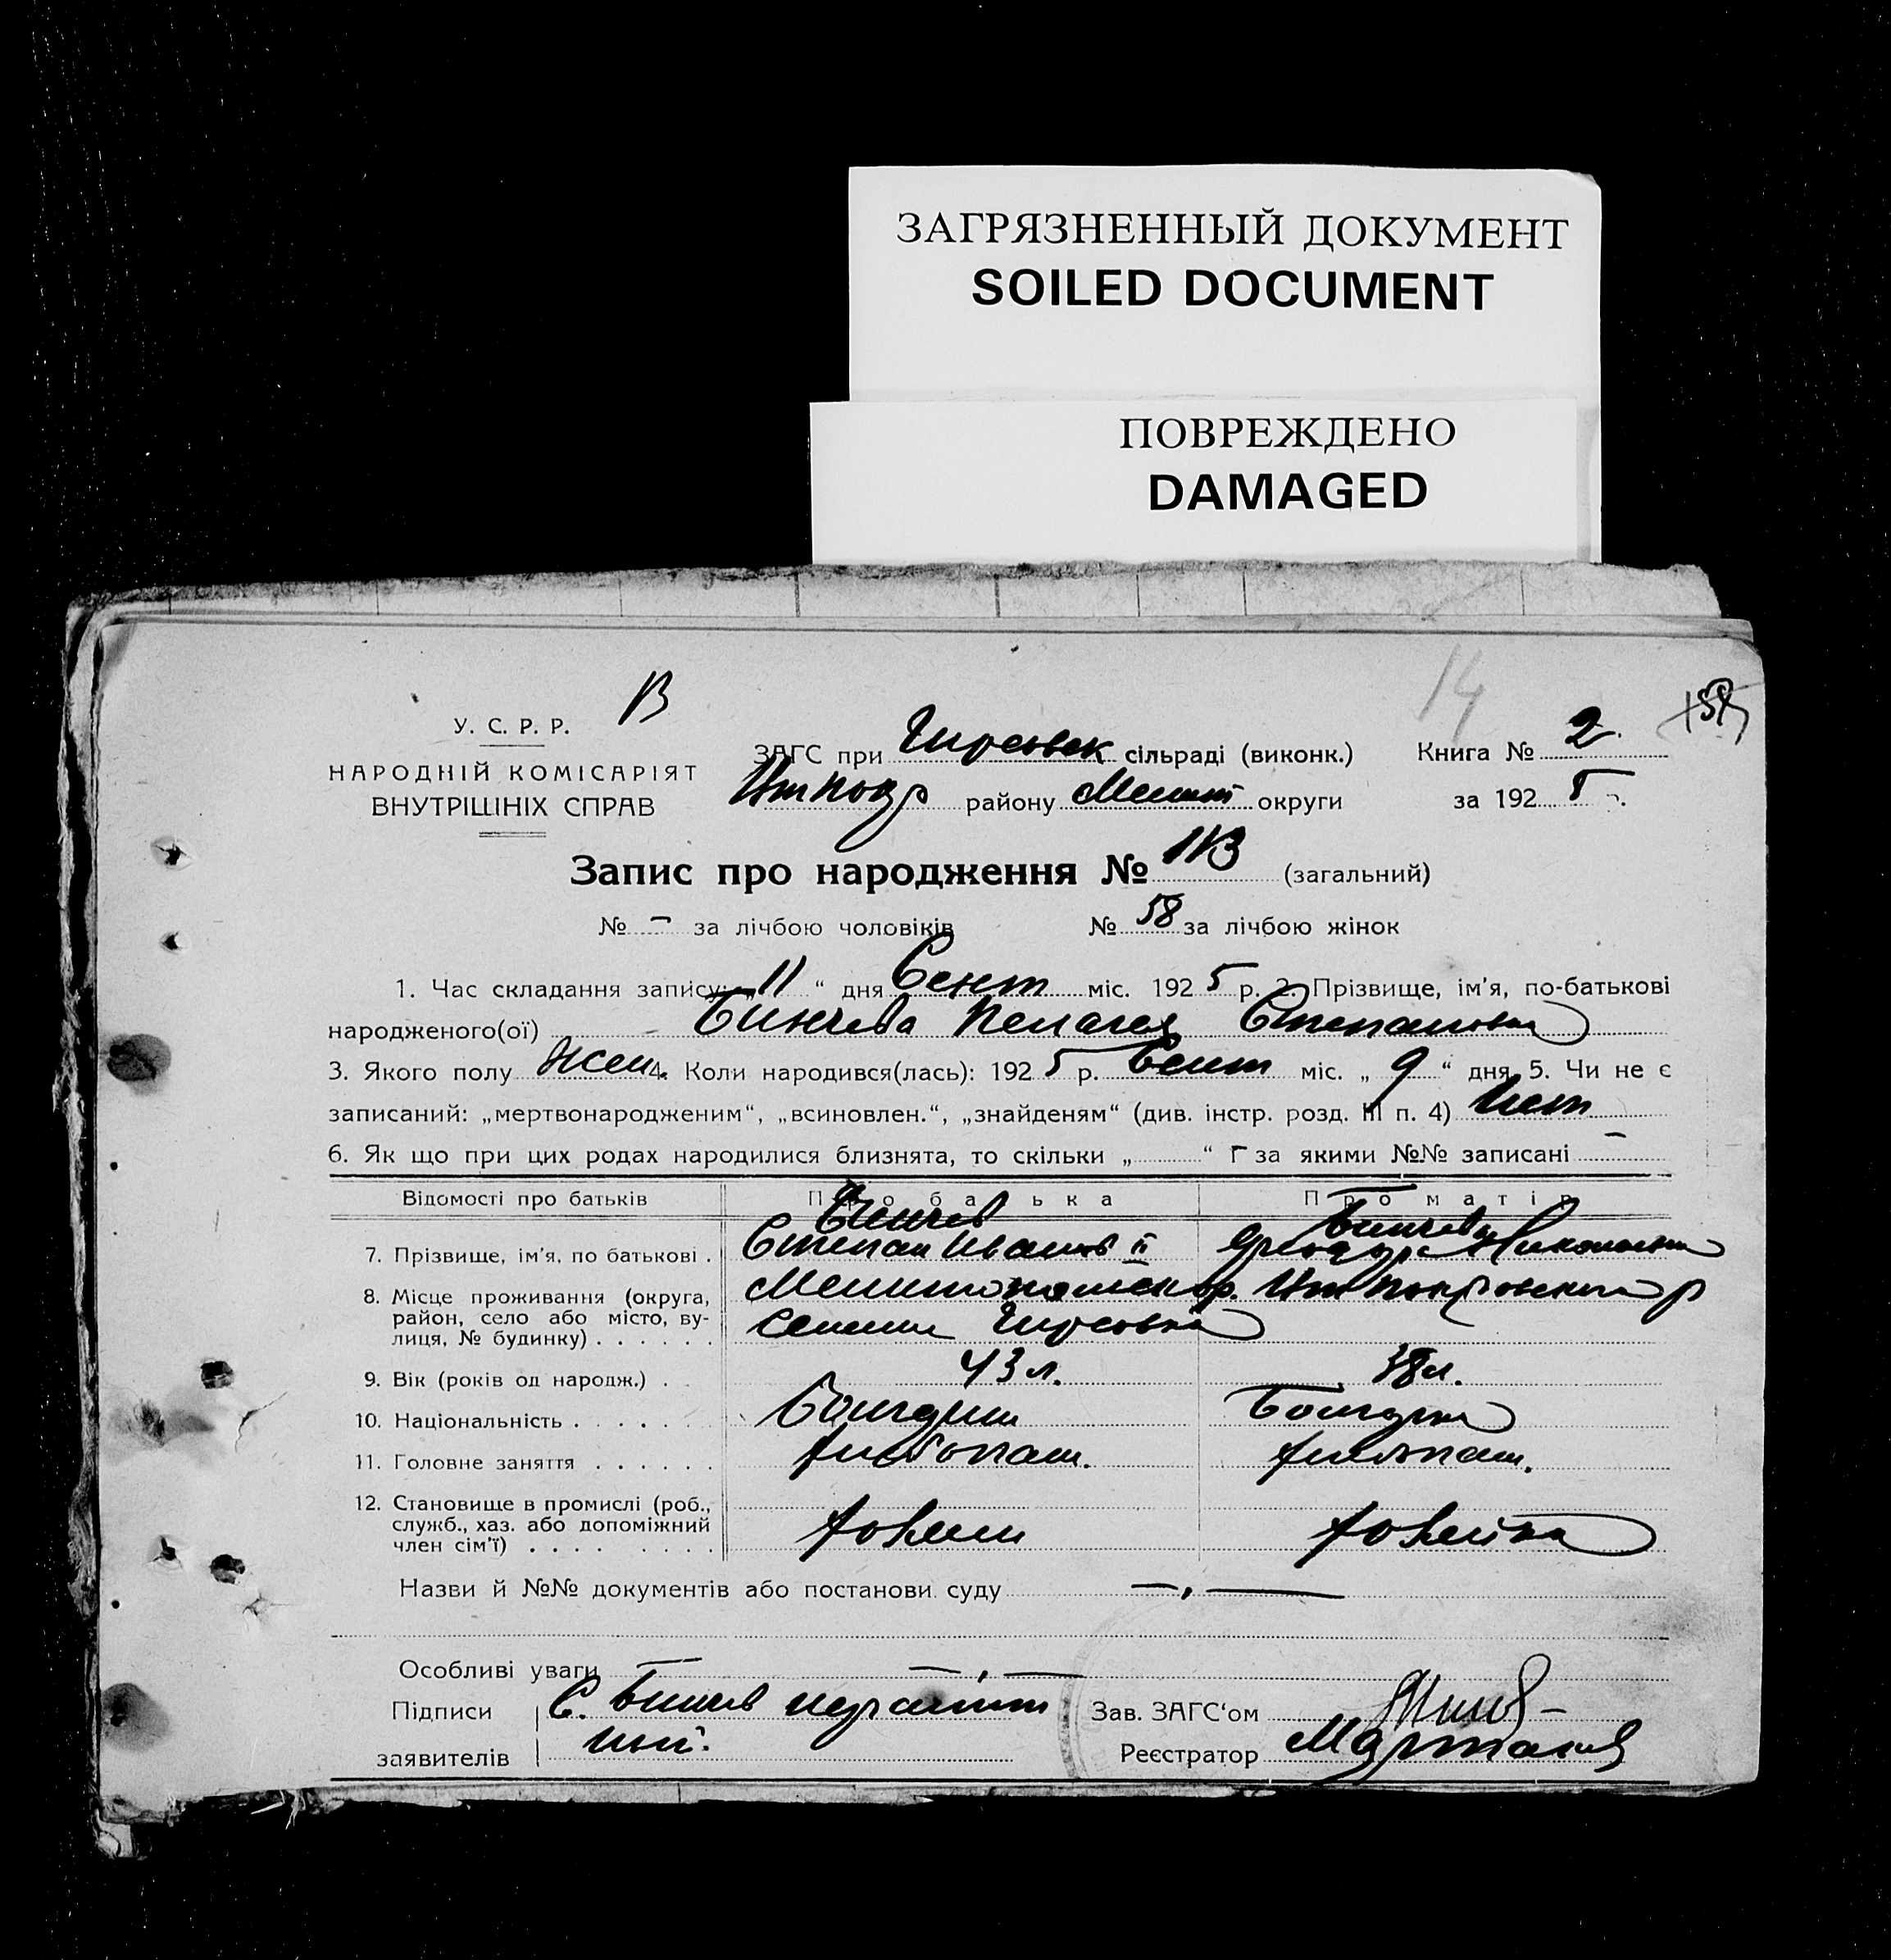 ЗАГРЯЗНЕННЫЙ ДОКУМЕНТ
SOILED DOCUMENT
ПОВРЕЖДЕНО
DAMAGED
14
В
У. С. Р. Р.
НАРОДНІЙ КОМІСАРІЯТ
ВНУТРІШНІХ СПРАВ
ЗАГС при Гирсовск сільраді (виконк.) Книга № 2
району Мелит округи за 1925 р.
Запис про народження № 113 (загальний)
№ – за лічбою чоловіків № 58 за лічбою жінок
1. Час складання запису: „11“ дня Сент міс. 1925 р. 2. Прізвище, ім'я, по-батькові
народженого(ої) Бинчева Пелагея Степановна
3. Якого полу жен 4. Коли народився(лась): 1925 р. Сент міс. „9“ дня 5. Чи не є
записаний: „мертвонародженим“, „всиновлен.“, „знайденям“ (див. інстр. розд. III п. 4) Нет
6. Як що при цих родах народилися близнята, то скільки „ “ – за якими №№ записані –
Відомості про батьків Про батька Про матір
Бинчев Бинчева
7. Прізвище, ім'я, по батькові . Степан Иванов Николаевна
8. Місце проживання (округа, район, село або місто, вулиця, № будинку) . . . . . . Мелитопольск окр.
селении Гирсовка
9. Вік (років од народж.) . 43 л. 38 л.
10. Національність . . . . . Болгарин Болгарка
11. Головне заняття . . . . . . хлебопаш. хлебопаш.
12. Становище в промислі (роб., служб., хаз. або допоміжний член сім'ї) . . . . . . . . . хозяин хозяйка
Назви й №№ документів або постанови суду –,–
Особливі уваги –,–
Підписи С. Бинчев неграмот
заявителів ный.
Зав. ЗАГС'ом
Реєстратор